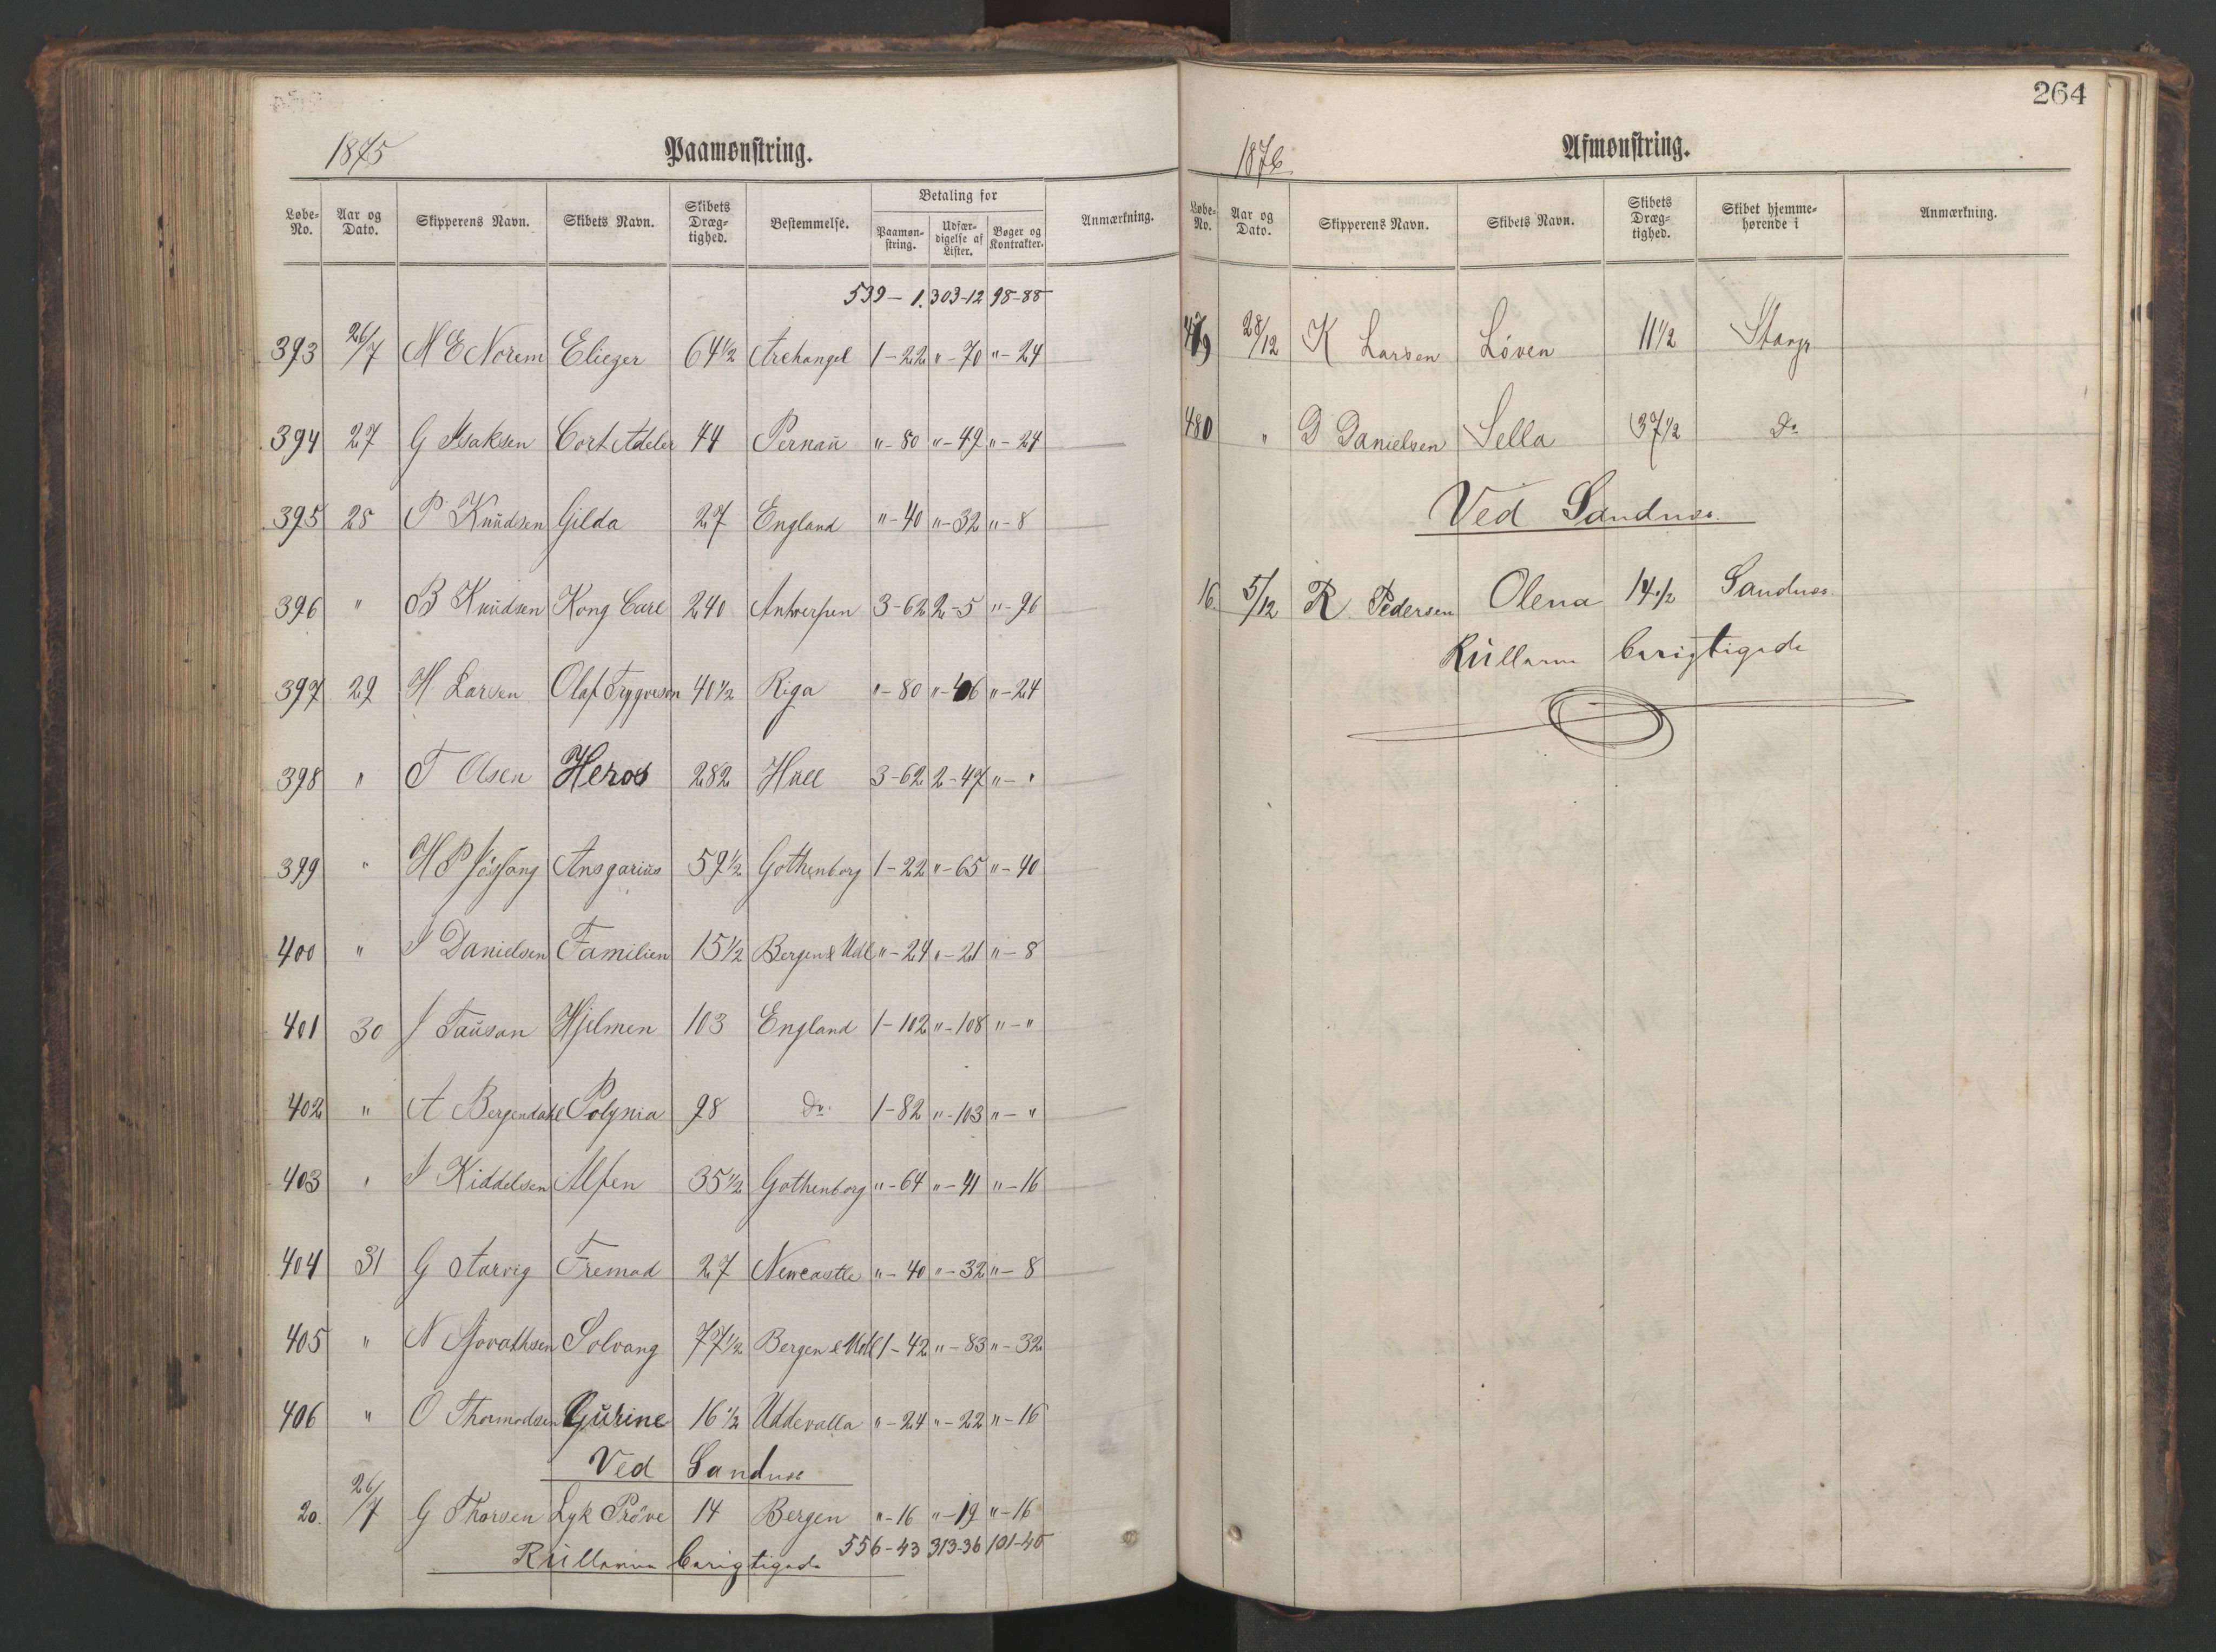 1875 Paamønstring.
Løbe-No. Aar og Dato. Skipperens Navn. Skibets Navn. Skibets Dræg-tighed. Bestemmelse. Betaling for Paamøn-string. Udfær-digelse af Lister. Bøger og Kontrakter. Anmærkning.
539 - 1. 303-12 98-88
393 26/7 N E Norem Eliezer 64 1/2 Archangel 1-22 "-70 "-24
394 27 G Isaksen Cort Adeler 44 Pernaŭ "-80 "-49 "-24
395 28 P Knŭdsen Gilda 27 England "-40 "-32 "-8
396 " B Knŭdsen Kong Carl 240 Antwerpen 3-62 2-5 "-96
397 29 H Larsen Olaf Trygveson 40 1/2 Riga "-80 "-46 "-24
398 " T Olsen Heros 282 Hull 3-62 2-47 "-"
399 " H P Ansgariŭs 59 1/2 Gothenborg 1-22 "-65 "-40
400 " J Danielsen Familien 15 1/2 Bergen & Udl "-24 "-21 "-8
401 30 J Taŭson Hjelmen 103 England 1-102 "-108 "-"
402 " A Bergendahl Polynia 98 Do. 1-82 "-103 "-"
403 " J Kiddelsen Alfen 35 1/2 Gothenborg "-64 "-41 "-16
404 31 G Aarvig Fremad 27 Newcastle "-40 "-32 "-8
405 " N Solvang 77 1/2 Bergen & Udl 1-42 "-83 "-32
406 " O Thormodsen Gŭrine 16 1/2 Uddevalla "-24 "-22 "-16
Ved Sandnes
20. 26/7 G Thorsen Lyk Pröve 14 Bergen "-16 "-19 "-16
556-43 313-36 101-40
Rŭllerne berigtigede
264
1876 Afmønstring.
Løbe-No. Aar og Dato. Skipperens Navn. Skibets Navn. Skibets Dræg-tighed. Skibet hjemme-hørende i Anmærkning.
479 28/12 K Larsen Løven 11 1/2 Stavgr
480 " D Danielsen Sella 37 1/2 Do
Ved Sandnes.
16. 5/12 R. Pedersen Olena 14 1/2 Sandnes.
Rŭllerne berigtigede